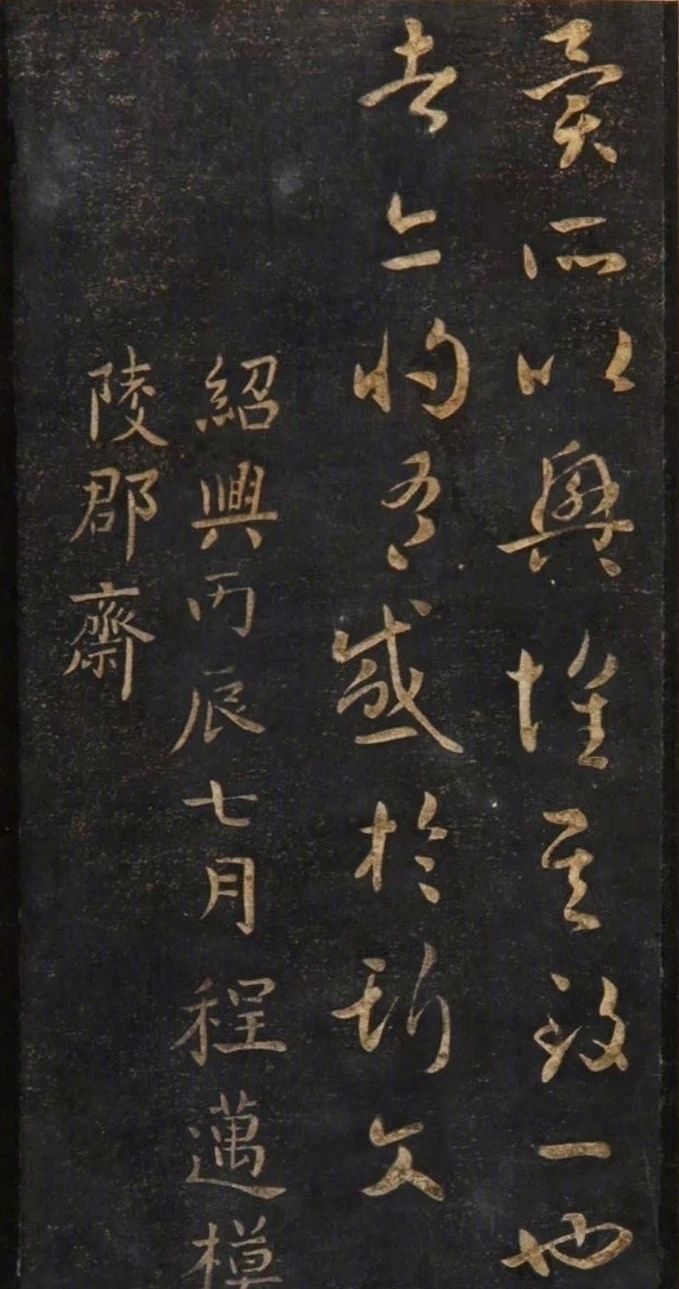 異所以興懷其致一也
者亦將有感於斯文
紹興丙辰七月程邁模
陵郡齋